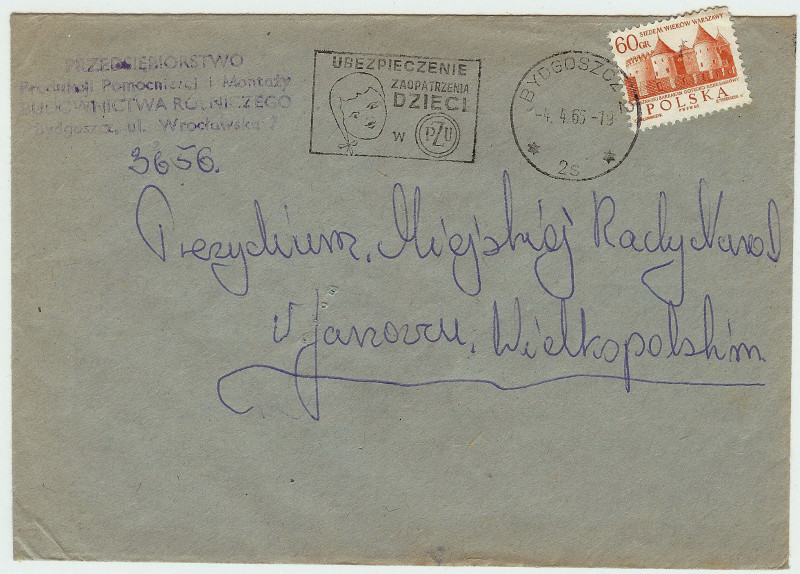 PRZEDSIĘBIORSTWO
Produkcji Pomocniczej i Montaży
BUDOWNICTWA ROLNICZEGO
Bydgoszcz, ul. Wrocławska 7
3656.
UBEZPIECZENIE
ZAOPATRZENIA
DZIECI
W PZU
BYDGOSZCZ 2
-4. 4.65-19
2s
60 GR
SIEDEM WIEKÓW WARSZAWY
POLSKA
Prezydium, Miejskiej Rady Narod
w Janowcu, Wielkopolskim